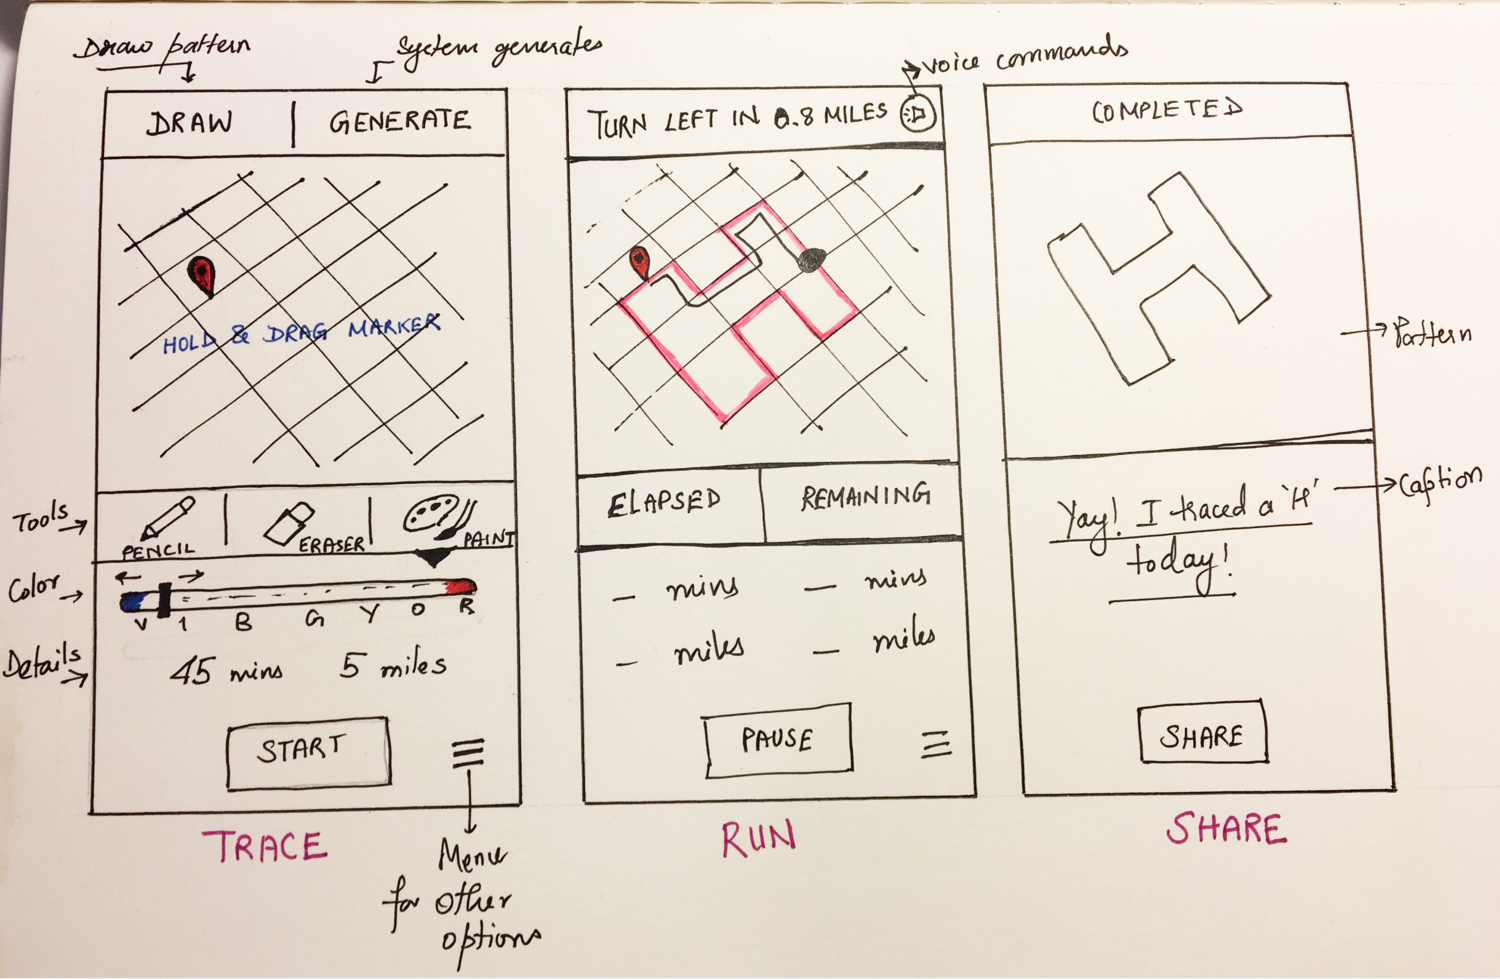 Draw pattern
System generates
Voice commands
DRAW
GENERATE
HOLD & DRAG MARKER
Tools
PENCIL
ERASER
PAINT
Color
V I B G Y O R
Details
45 mins 5 miles
START
Menu
for other
options
TRACE
TURN LEFT IN 0.8 MILES
ELAPSED
REMAINING
– mins – mins
– miles – miles
PAUSE
RUN
COMPLETED
Pattern
Caption
Yay! I traced a 'H'
today!
SHARE
SHARE